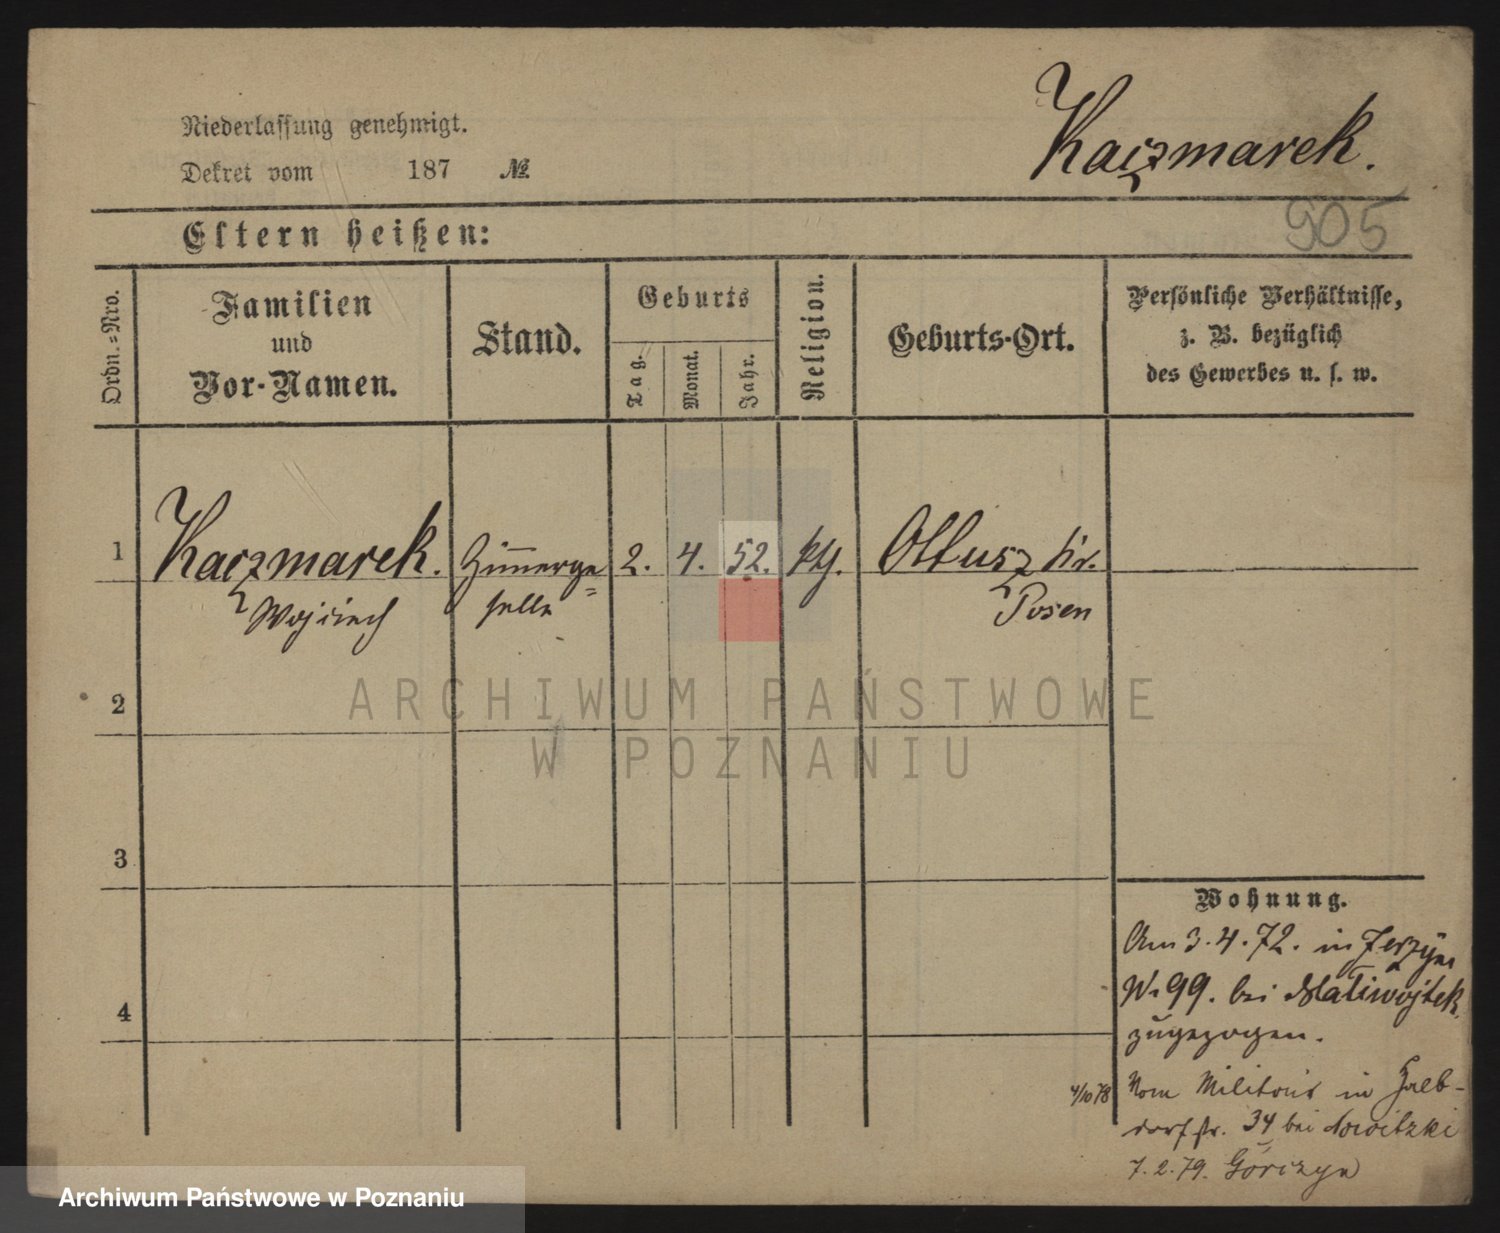 Kaczmarek.
Niederlassung genehmigt.
Dekret vom 187 №
905
Eltern heißen:
Ordn.=Nro.
Familien
und
Vor-Namen.
Stand.
Geburts
Tag.
Monat.
Jahr.
Religion.
Geburts-Ort.
Persönliche Verhältnisse,
z. B. bezüglich
des Gewerbes u. s. w.
1 Kaczmarek. Zimmerge= 2. 4. 52. kth. Ottusz Kr.
Wojciech selle Posen
2
3
4
Wohnung.
Am 3.4.72. in Jerzyce
N. 99. bei Matiwojtek
zugezogen.
4/10 78 Vom Militair in Halb-
dorfstr. 34 bei Nowitzki
7.2.79. Górczyn
ARCHIWUM PAŃSTWOWE
W POZNANIU
Archiwum Państwowe w Poznaniu